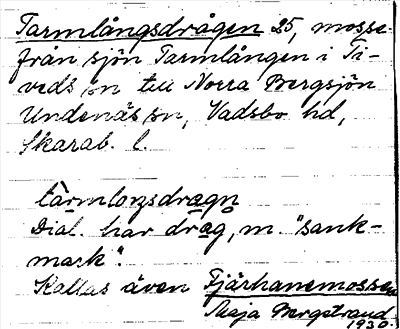 Tarmlångsdrågen 25, mosse
från sjön Tarmlången i Ti-
veds sn till Norra Bergsjön
Undenäs sn, Vadsbo hd,
Skarab. l.
tàrmloŋsdragn̥
Dial. har dråg, m. "sank-
mark".
Kallas även Tjärhanemossen
Maja Bergstrand
1930.